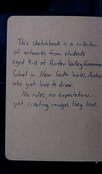 This sketchbook is a collection
of artworks from students
aged 9-18 at Hunter Valley Grammar
School in New South Wales, Australia
who just love to draw.
No rules, no expectations...
just creating images they love.